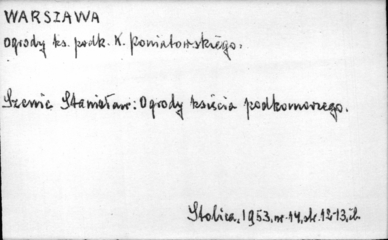 WARSZAWA
Ogrody ks. podk. K. Poniatowskiego.
Szenic Stanisław: Ogrody księcia podkomorzego.
Stolica, 1953, nr 14, str. 12-13, il.